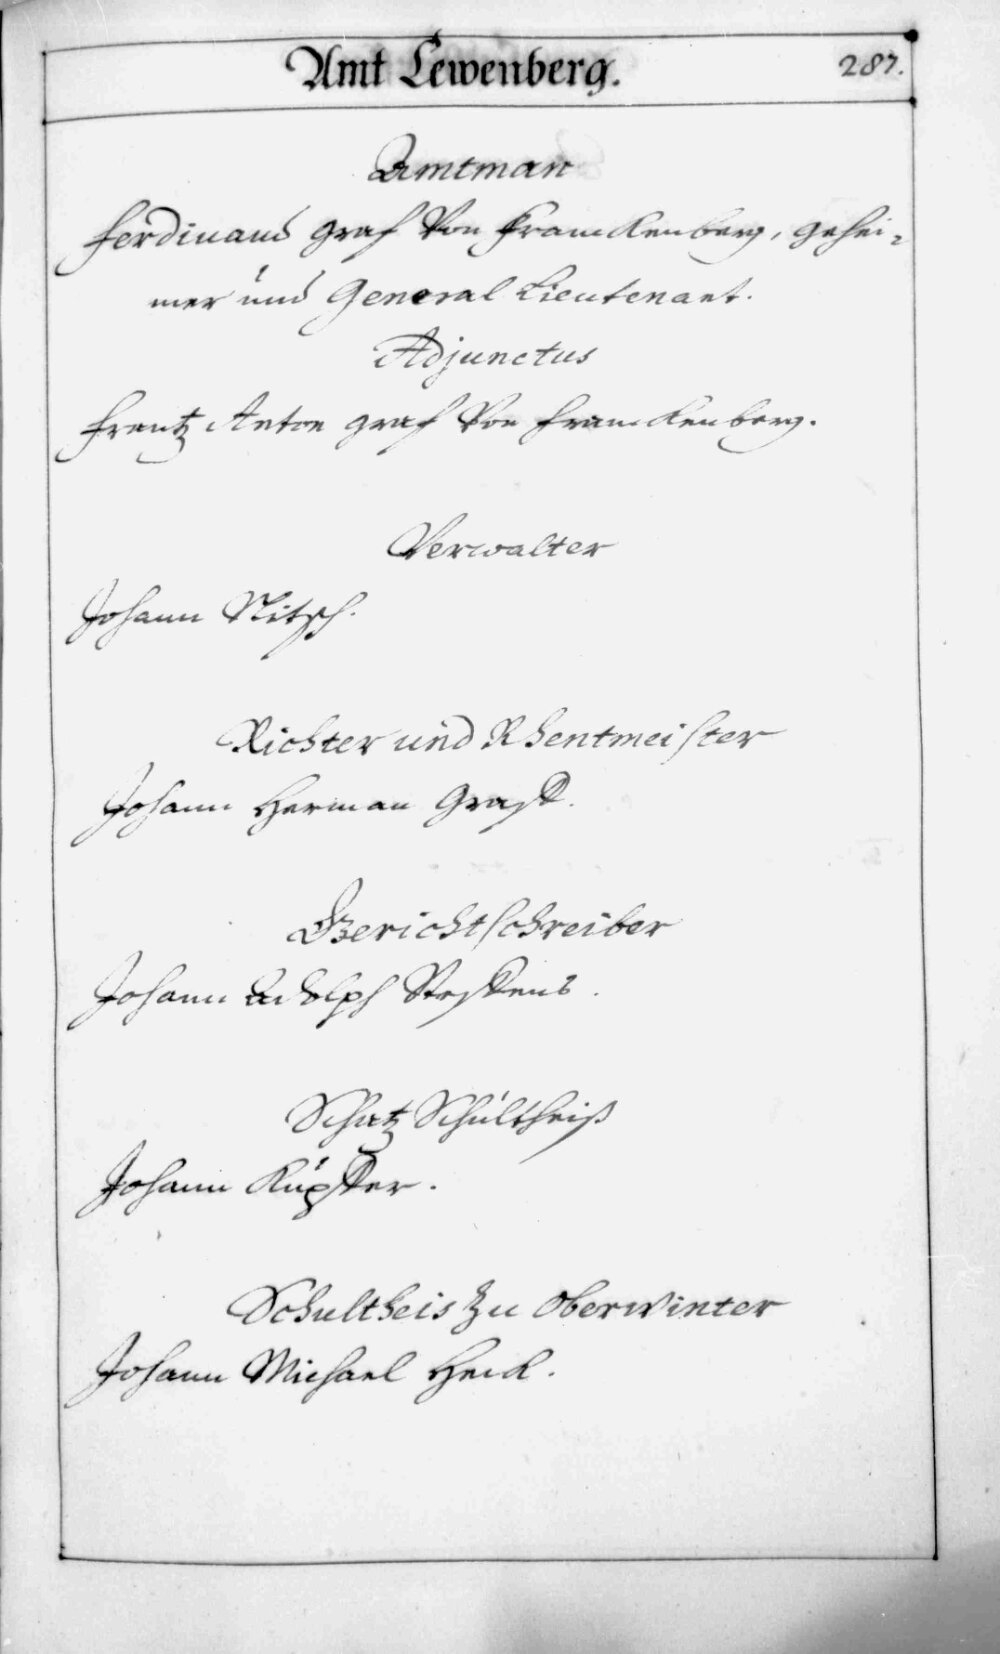 Amt Lewenberg.
287.
Amtman
Ferdinand Graf Von Franckenberg, gehei-
mer und General Lieutenant.
Adjunctus
Frantz Anton graf Von Franckenberg.
Verwalter
Johann Nitzsch.
Richter und Rhentmeister
Johann Herman
Gerichtschreiber
Johann Adolph
Schatz Schültheiß
Johann
Schultheis zu Oberwinter
Johann Michael Heck.